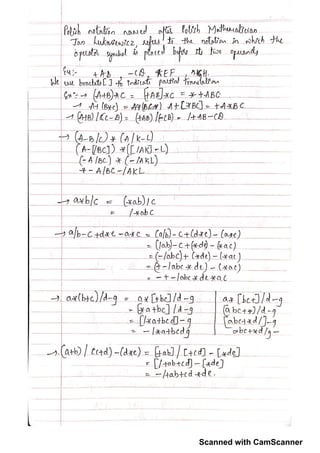 Polish notation named after Polish Mathematician
Jan Lukasiewicz, refers to the notation in which the
operator symbol is placed before its two operands
Eg:- +AB -CD *EF /GH.
We use brackets [ ] to indicate partial translation
Eg:- → (A+B)*C = [+AB]*C = *+ABC
→ A+(B*C) = A+[*BC] = +A*BC
→ (A+B)/(C-D) = [+AB]/[-CD] = /+AB-CD
→ (A-B/C) * (A/K-L)
(A-[/BC]) * ([/AK]-L)
(-A/BC) * (-/AKL)
*-A/BC-/AKL
→ a*b/c = (*ab)/c
= /*abc
→ a/b-c+d*e-a*c = (a/b)-c+(d*e)-(a*c)
= (/ab)-c+(*de)-(*ac)
= (-/abc)+(*de)-(*ac)
= (+-/abc*de)-(*ac)
= -+-/abc*de*ac
→ a*(b+c)/d-g = a*[+bc]/d-g
= [*a+bc]/d-g
= [/*a+bcd]-g
= -/*a+bcdg
a*[bc+]/d-g
[abc+*]/d-g
[abc+*d/]-g
abc+*d/g-
→ (a+b)/(c+d)-(d*e) = [+ab]/[+cd]-[*de]
= [/+ab+cd]-[*de]
= -/+ab+cd*de.
Scanned with CamScanner